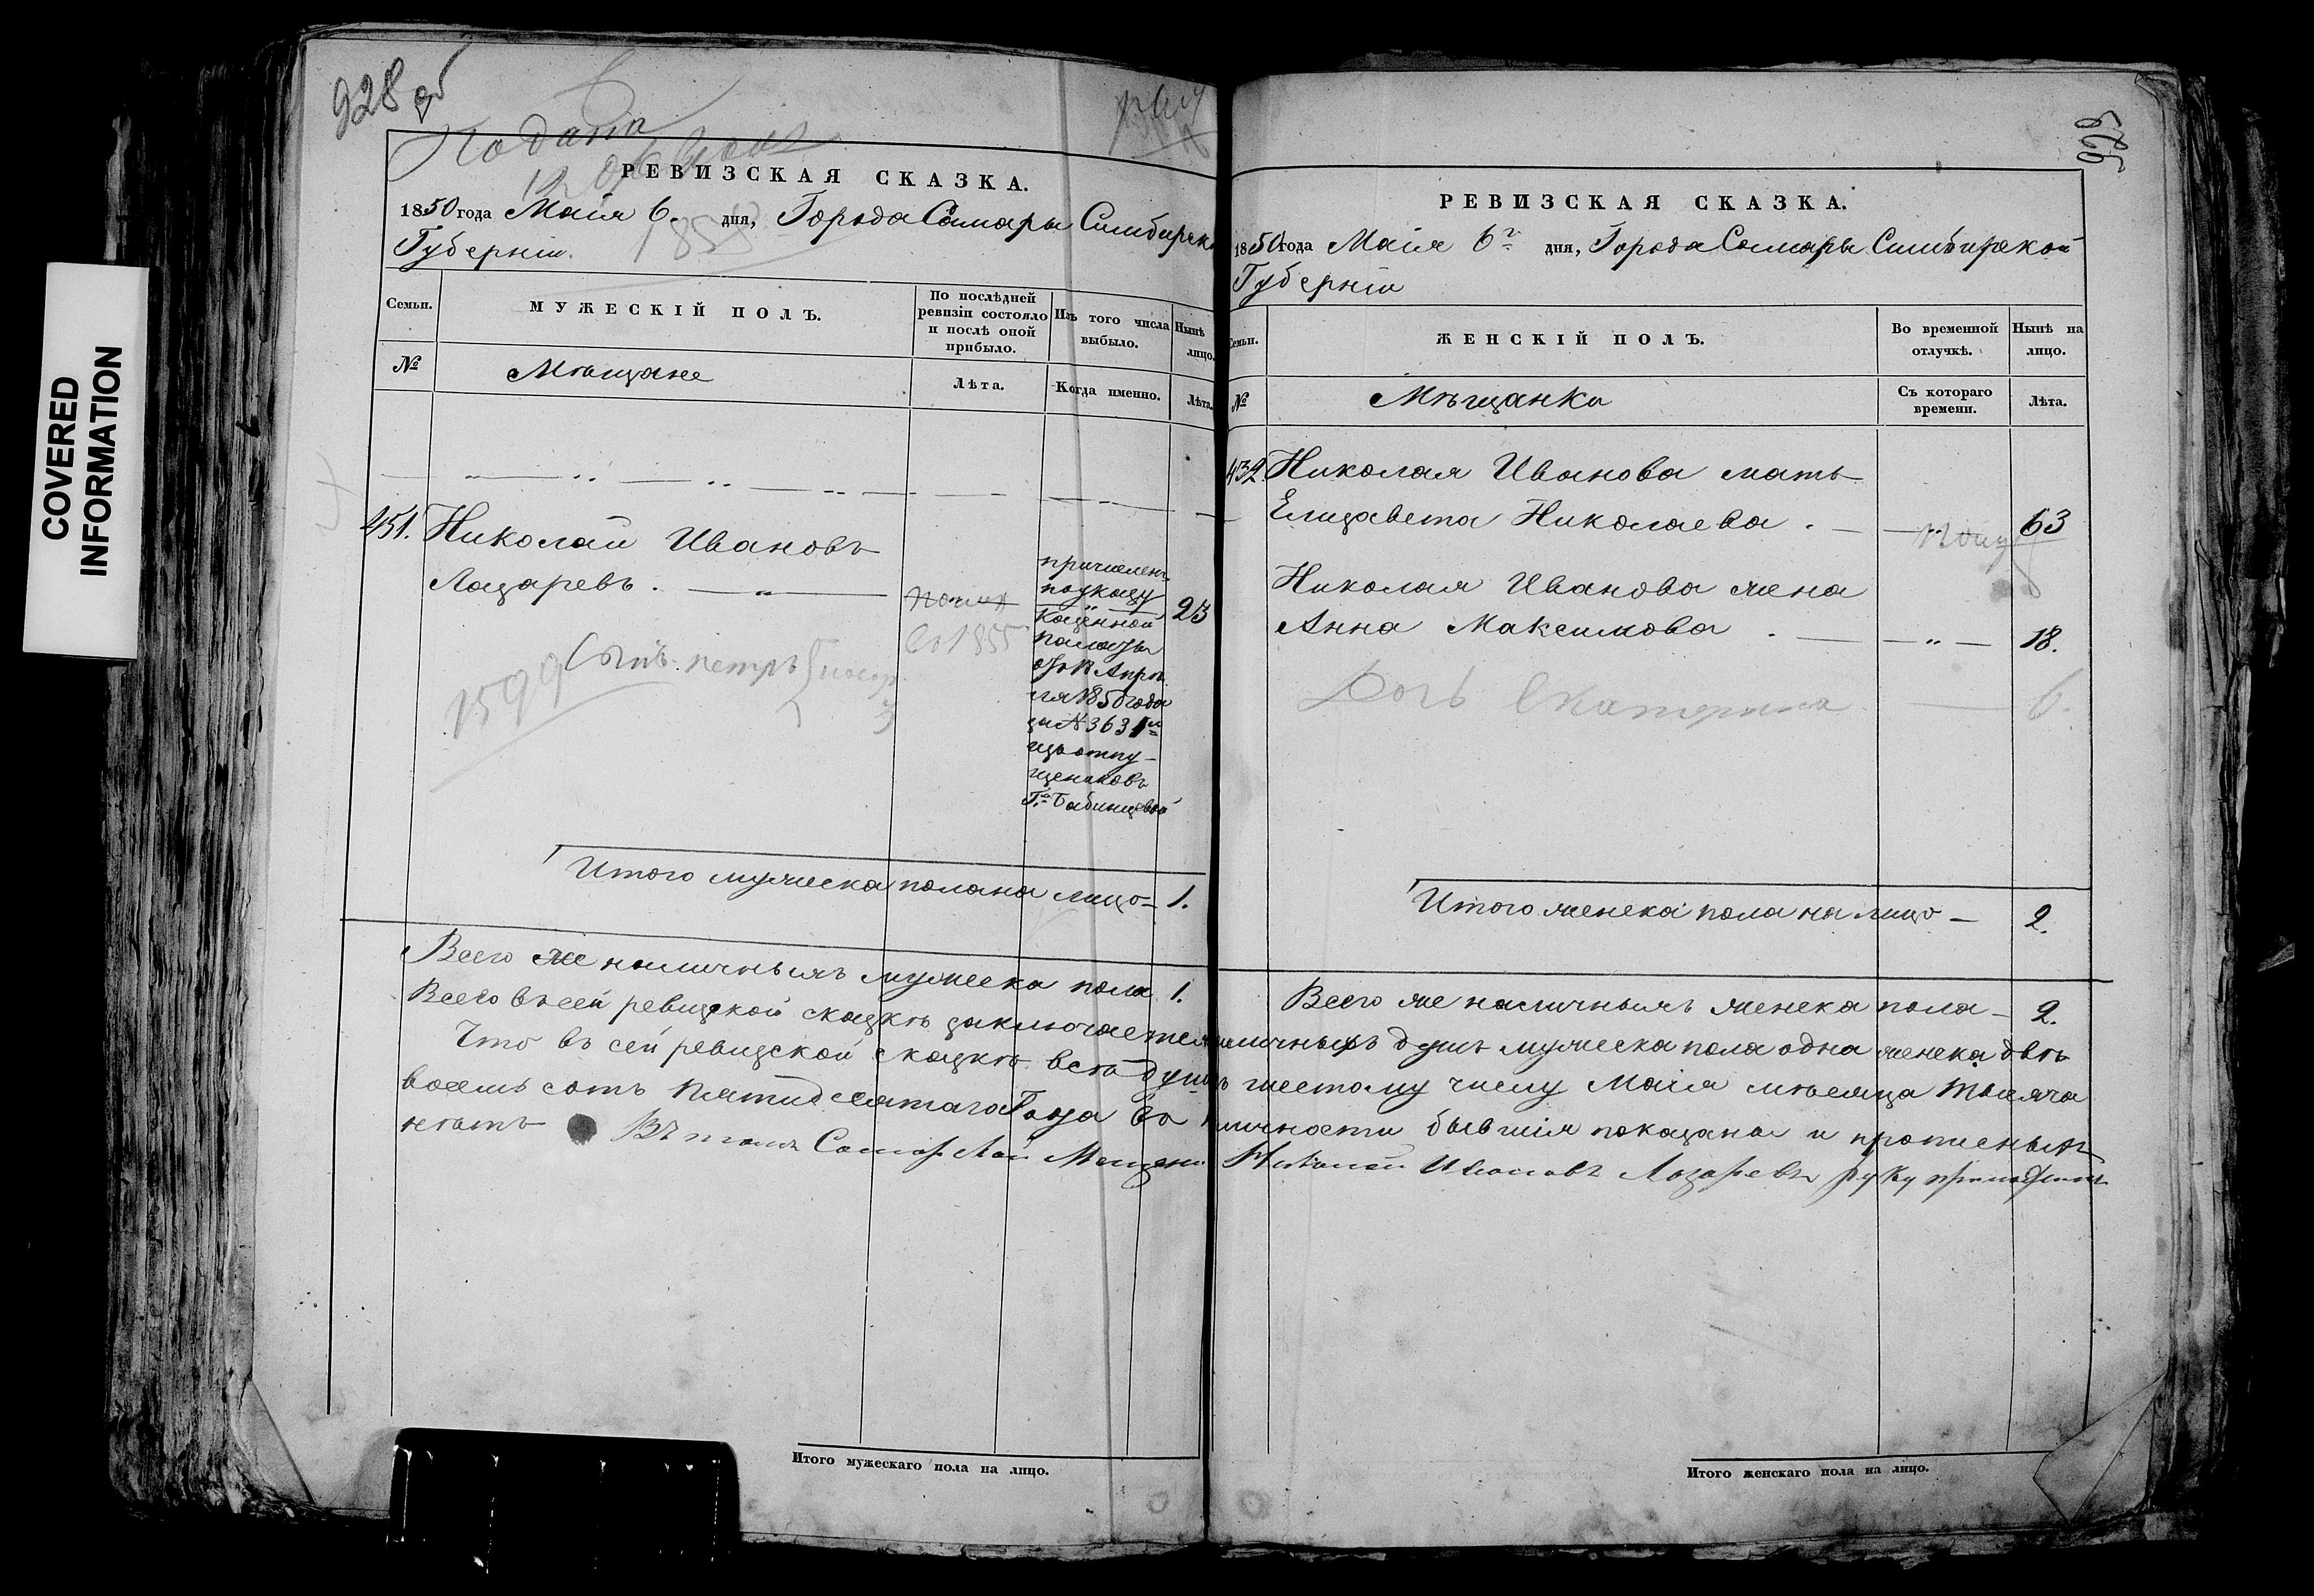 COVERED
INFORMATION
928 об
Подана
1858
РЕВИЗСКАЯ СКАЗКА.
1850 года Маія 6. дня, Города Самары Симбирской
Губерніи.
Семьи.
МУЖЕСКІЙ ПОЛЪ.
По послѣдней
ревизіи состояло
и послѣ оной
прибыло.
Изъ того числа
выбыло.
Нынѣ
лицо.
№
Мѣщане
Лѣта.
Когда именно.
Лѣта.
451. Николай Ивановъ
Лазаревъ. — „ —
причисленъ
по указу
Казенной
палаты
отъ 18 Апрѣ
ля 1850 года
за № 3631м
изъ отпу-
щениковъ
Гжи Бабинцевой
23
помер
въ 1855
Сынъ петръ
3
1599
Итого мужеска пола на лицо — 1.
Всего же наличныхъ мужеска пола 1.
929
РЕВИЗСКАЯ СКАЗКА.
1850 года Маія 6го дня, Города Самары Симбирской
Губерніи
Семьи.
ЖЕНСКІЙ ПОЛЪ.
Во временной
отлучкѣ.
Нынѣ на
лицо.
№
Мѣщанки
Съ котораго
времени.
Лѣта.
Николая Иванова мать
Елизавета Николаева . — 63
Николая Иванова жена
Анна Максимова . — „ — 18.
Дочь Екатерина — 6.
Итого женска пола на лицо — 2.
Всего же наличныхъ женска пола — 2.
Всего въ сей ревизской сказкѣ заключается наличныхъ душъ мужеска пола одна женска двѣ
Что въ сей ревизской сказкѣ всѣ души къ шестому числу Маія мѣсяца тысяча
восемь сотъ пятидесятаго Года въ наличности бывшія показаны и прописныхъ
нетъ Въ томъ Самарской Мещанинъ Николай Ивановъ Лазаревъ руку приложилъ
Итого мужескаго пола на лицо.
Итого женскаго пола на лицо.